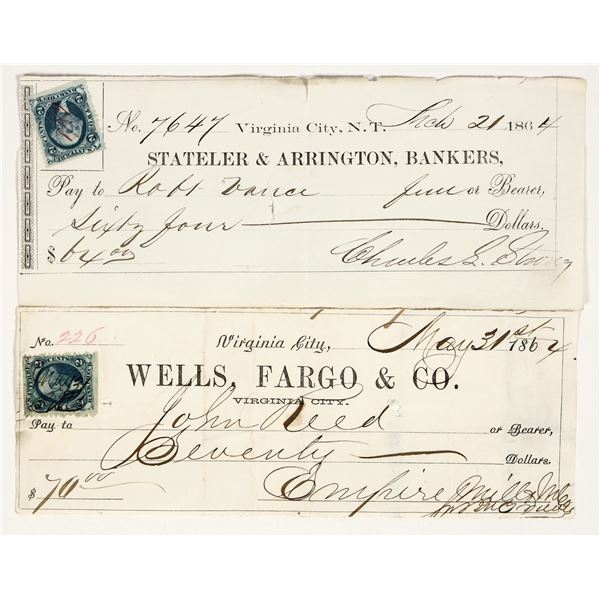 No. 7647 Virginia City, N.T. Mch 21 1864
STATELER & ARRINGTON, BANKERS,
Pay to Robt Vance or Bearer,
Sixty four Dollars.
$64.00 Charles L. Strong
No. 226 Virginia City, May 31st 1864
WELLS, FARGO & CO.
VIRGINIA CITY.
Pay to John Reed or Bearer,
Seventy Dollars.
$70.00 Empire Mill & Mg Co